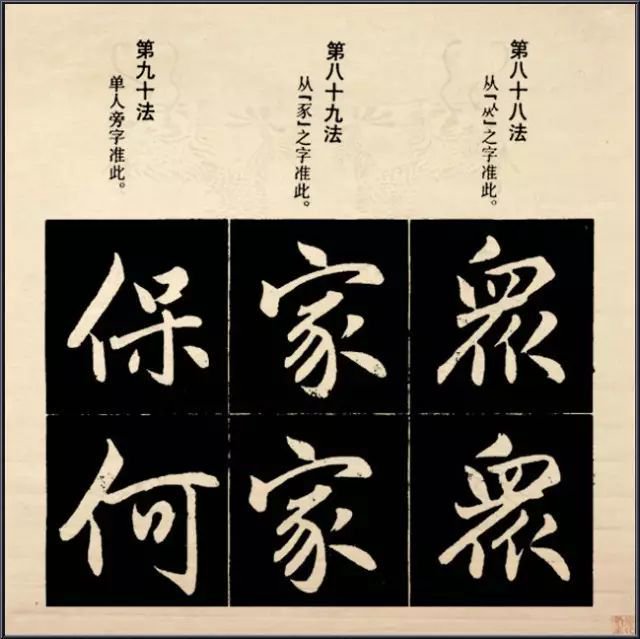 第八十八法
从「㐺」之字准此。
第八十九法
从「豕」之字准此。
第九十法
单人旁字准此。
眾 眾
家 家
保 何